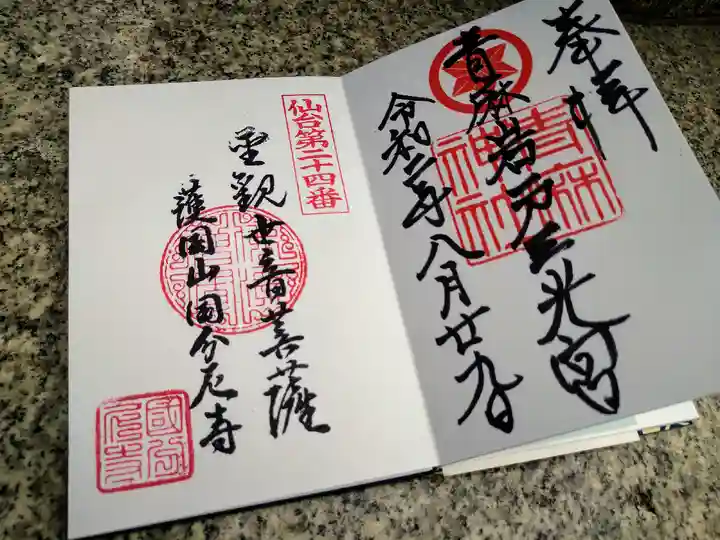 奉拝
青麻岩戸三光宮
青麻神社
令和二年八月廿九日
仙台第二十四番
聖観世音菩薩
護国山国分尼寺
國分尼寺